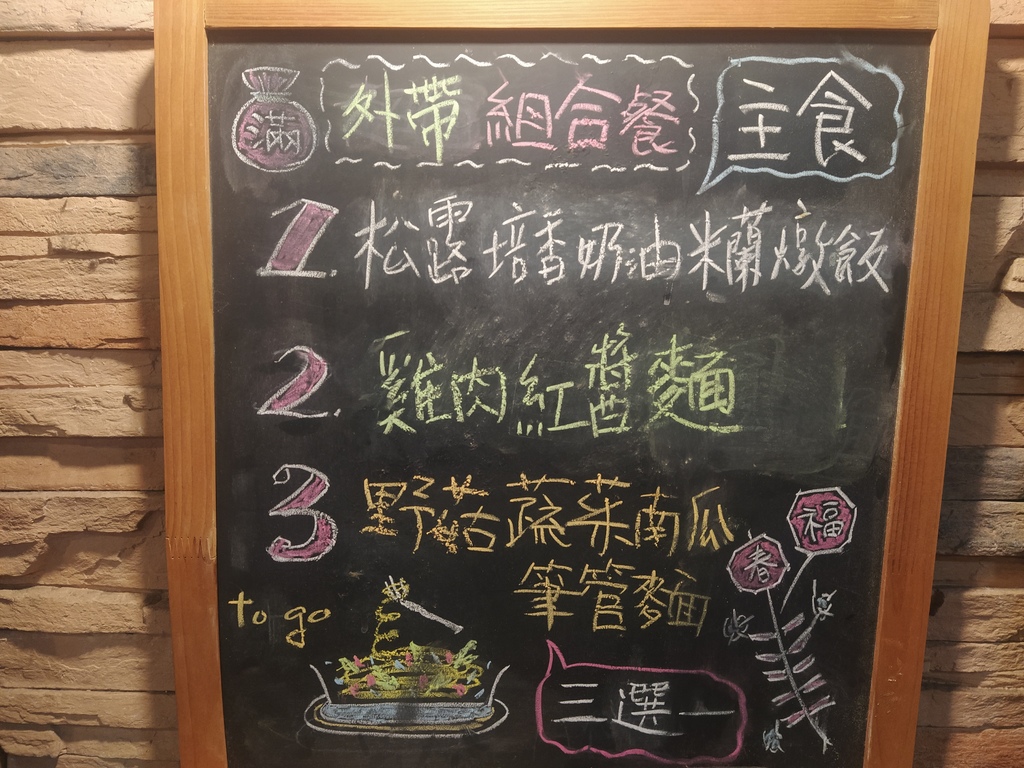 滿 外帶 組合餐 主食
1. 松露培香奶油米蘭燉飯
2. 雞肉紅醬麵
3 野菇蔬菜南瓜
筆管麵
福
春
to go
三選一